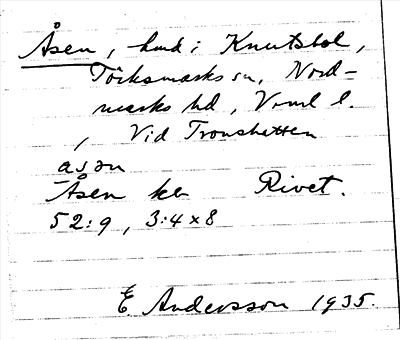 Åsen, hmd i Knutsbol,
Töcksmarks sn, Nord=
marks hd, Vrml l.
, Vid Tronshatten
asən
Åsen ka Rivet.
52:9, 3:4x8
E. Andersson 1935.